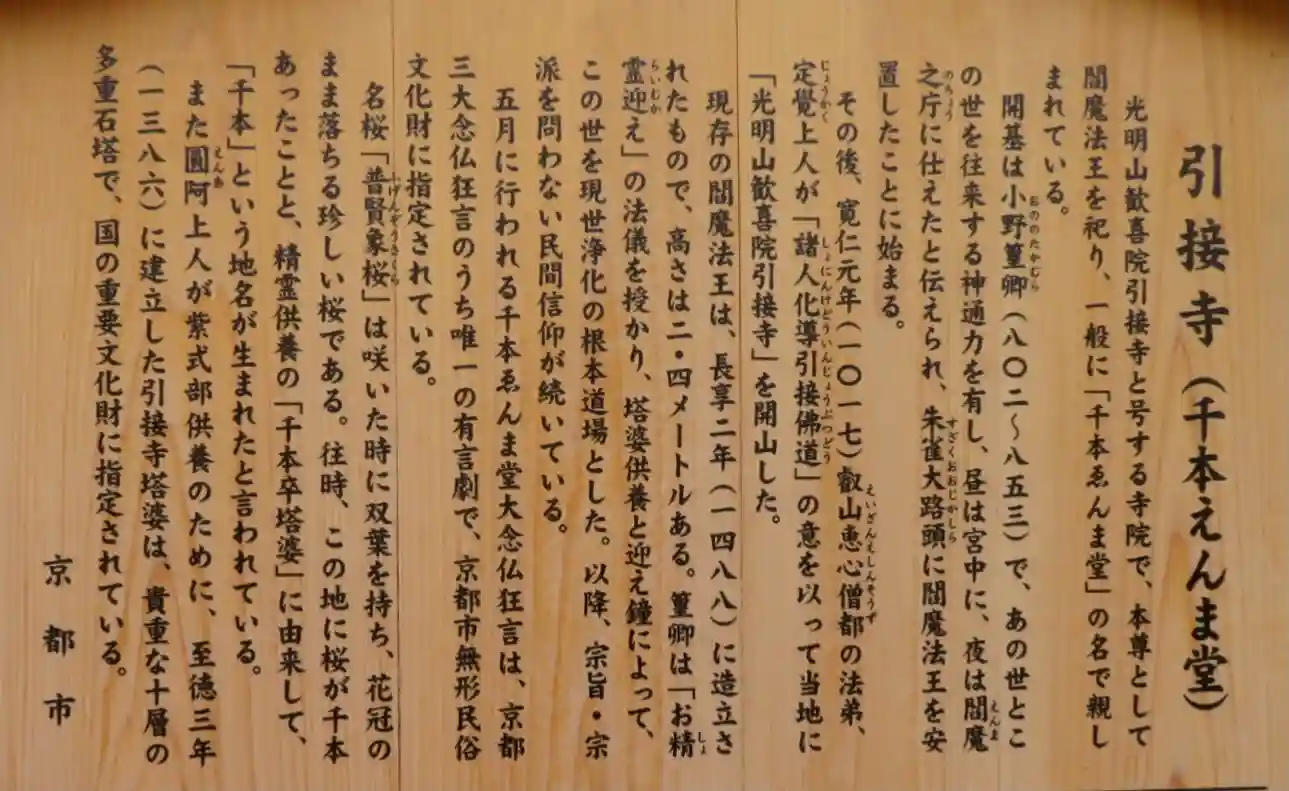 引接寺（千本えんま堂）
光明山歓喜院引接寺と号する寺院で、本尊として
閻魔法王を祀り、一般に「千本ゑんま堂」の名で親し
まれている。
開基は小野篁卿（八〇二～八五三）で、あの世とこ
の世を往来する神通力を有し、昼は宮中に、夜は閻魔
之庁に仕えたと伝えられ、朱雀大路頭に閻魔法王を安
置したことに始まる。
その後、寛仁元年（一〇一七）叡山恵心僧都の法弟、
定覺上人が「諸人化導引接佛道」の意を以って当地に
「光明山歓喜院引接寺」を開山した。
現存の閻魔法王は、長享二年（一四八八）に造立さ
れたもので、高さは二・四メートルある。篁卿は「お精
霊迎え」の法儀を授かり、塔婆供養と迎え鐘によって、
この世を現世浄化の根本道場とした。以降、宗旨・宗
派を問わない民間信仰が続いている。
五月に行われる千本ゑんま堂大念仏狂言は、京都
三大念仏狂言のうち唯一の有言劇で、京都市無形民俗
文化財に指定されている。
名桜「普賢象桜」は咲いた時に双葉を持ち、花冠の
まま落ちる珍しい桜である。往時、この地に桜が千本
あったことと、精霊供養の「千本卒塔婆」に由来して、
「千本」という地名が生まれたと言われている。
また圓阿上人が紫式部供養のために、至徳三年
（一三八六）に建立した引接寺塔婆は、貴重な十層の
多重石塔で、国の重要文化財に指定されている。
京都市